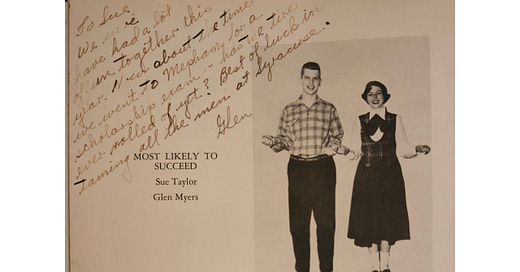 To Sue
We sure
have had a lot
of fun together this
year. about the time
we went to Mepham for a
scholarship exam -- has the tire
ever rolled off yet? Best of Luck in
taming all the men at Syracuse.
Glen
MOST LIKELY TO
SUCCEED
Sue Taylor
Glen Myers